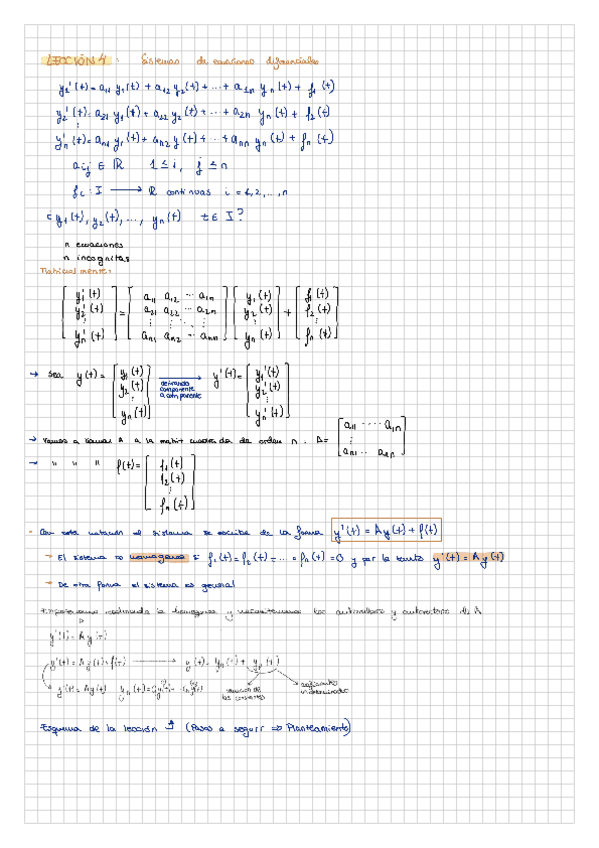 LECCIÓN 4: Sistemas de ecuaciones diferenciales
y₁'(t) = a₁₁ y₁(t) + a₁₂ y₂(t) + ... + a₁n yn(t) + f₁(t)
y₂'(t) = a₂₁ y₁(t) + a₂₂ y₂(t) + ... + a₂n yn(t) + f₂(t)
⋮
yn'(t) = an₁ y₁(t) + an₂ y(t) + ... + ann yn(t) + fn(t)
aij ∈ ℝ 1 ≤ i, j ≤ n
fi : I → ℝ continuas i = 1, 2, ..., n
¿ y₁(t), y₂(t), ..., yn(t) t ∈ I?
n ecuaciones
n incognitas
Matricialmente:
[y₁'(t) y₂'(t) ⋮ yn'(t)] = [a₁₁ a₁₂ ... a₁n a₂₁ a₂₂ ... a₂n ⋮ an₁ an₂ ... ann] [y₁(t) y₂(t) ⋮ yn(t)] + [f₁(t) f₂(t) ⋮ fn(t)]
→ Sea y(t) = [y₁(t) y₂(t) ⋮ yn(t)] derivando componente a componente → y'(t) = [y₁'(t) y₂'(t) ⋮ yn'(t)]
→ Vamos a llamar A a la matriz cuadrada de orden n. A = [a₁₁ ... a₁n ⋮ an₁ ... ann]
→ " " " f(t) = [f₁(t) f₂(t) ⋮ fn(t)]
• Con esta notación el sistema se escribe de la forma y'(t) = A y(t) + f(t)
→ El sistema es homogéneo si f₁(t) = f₂(t) = ... = fn(t) = 0 y por lo tanto y'(t) = A y(t)
→ De otra forma el sistema es general
y'(t) = A y(t)
y'(t) = A y(t) + f(t) → y(t) = yh(t) + yp(t)
y'(t) = A y(t)
variación de las constantes
coeficientes indeterminados
Esquema de la lección ↑ (Pasos a seguir ⇒ Planteamiento)